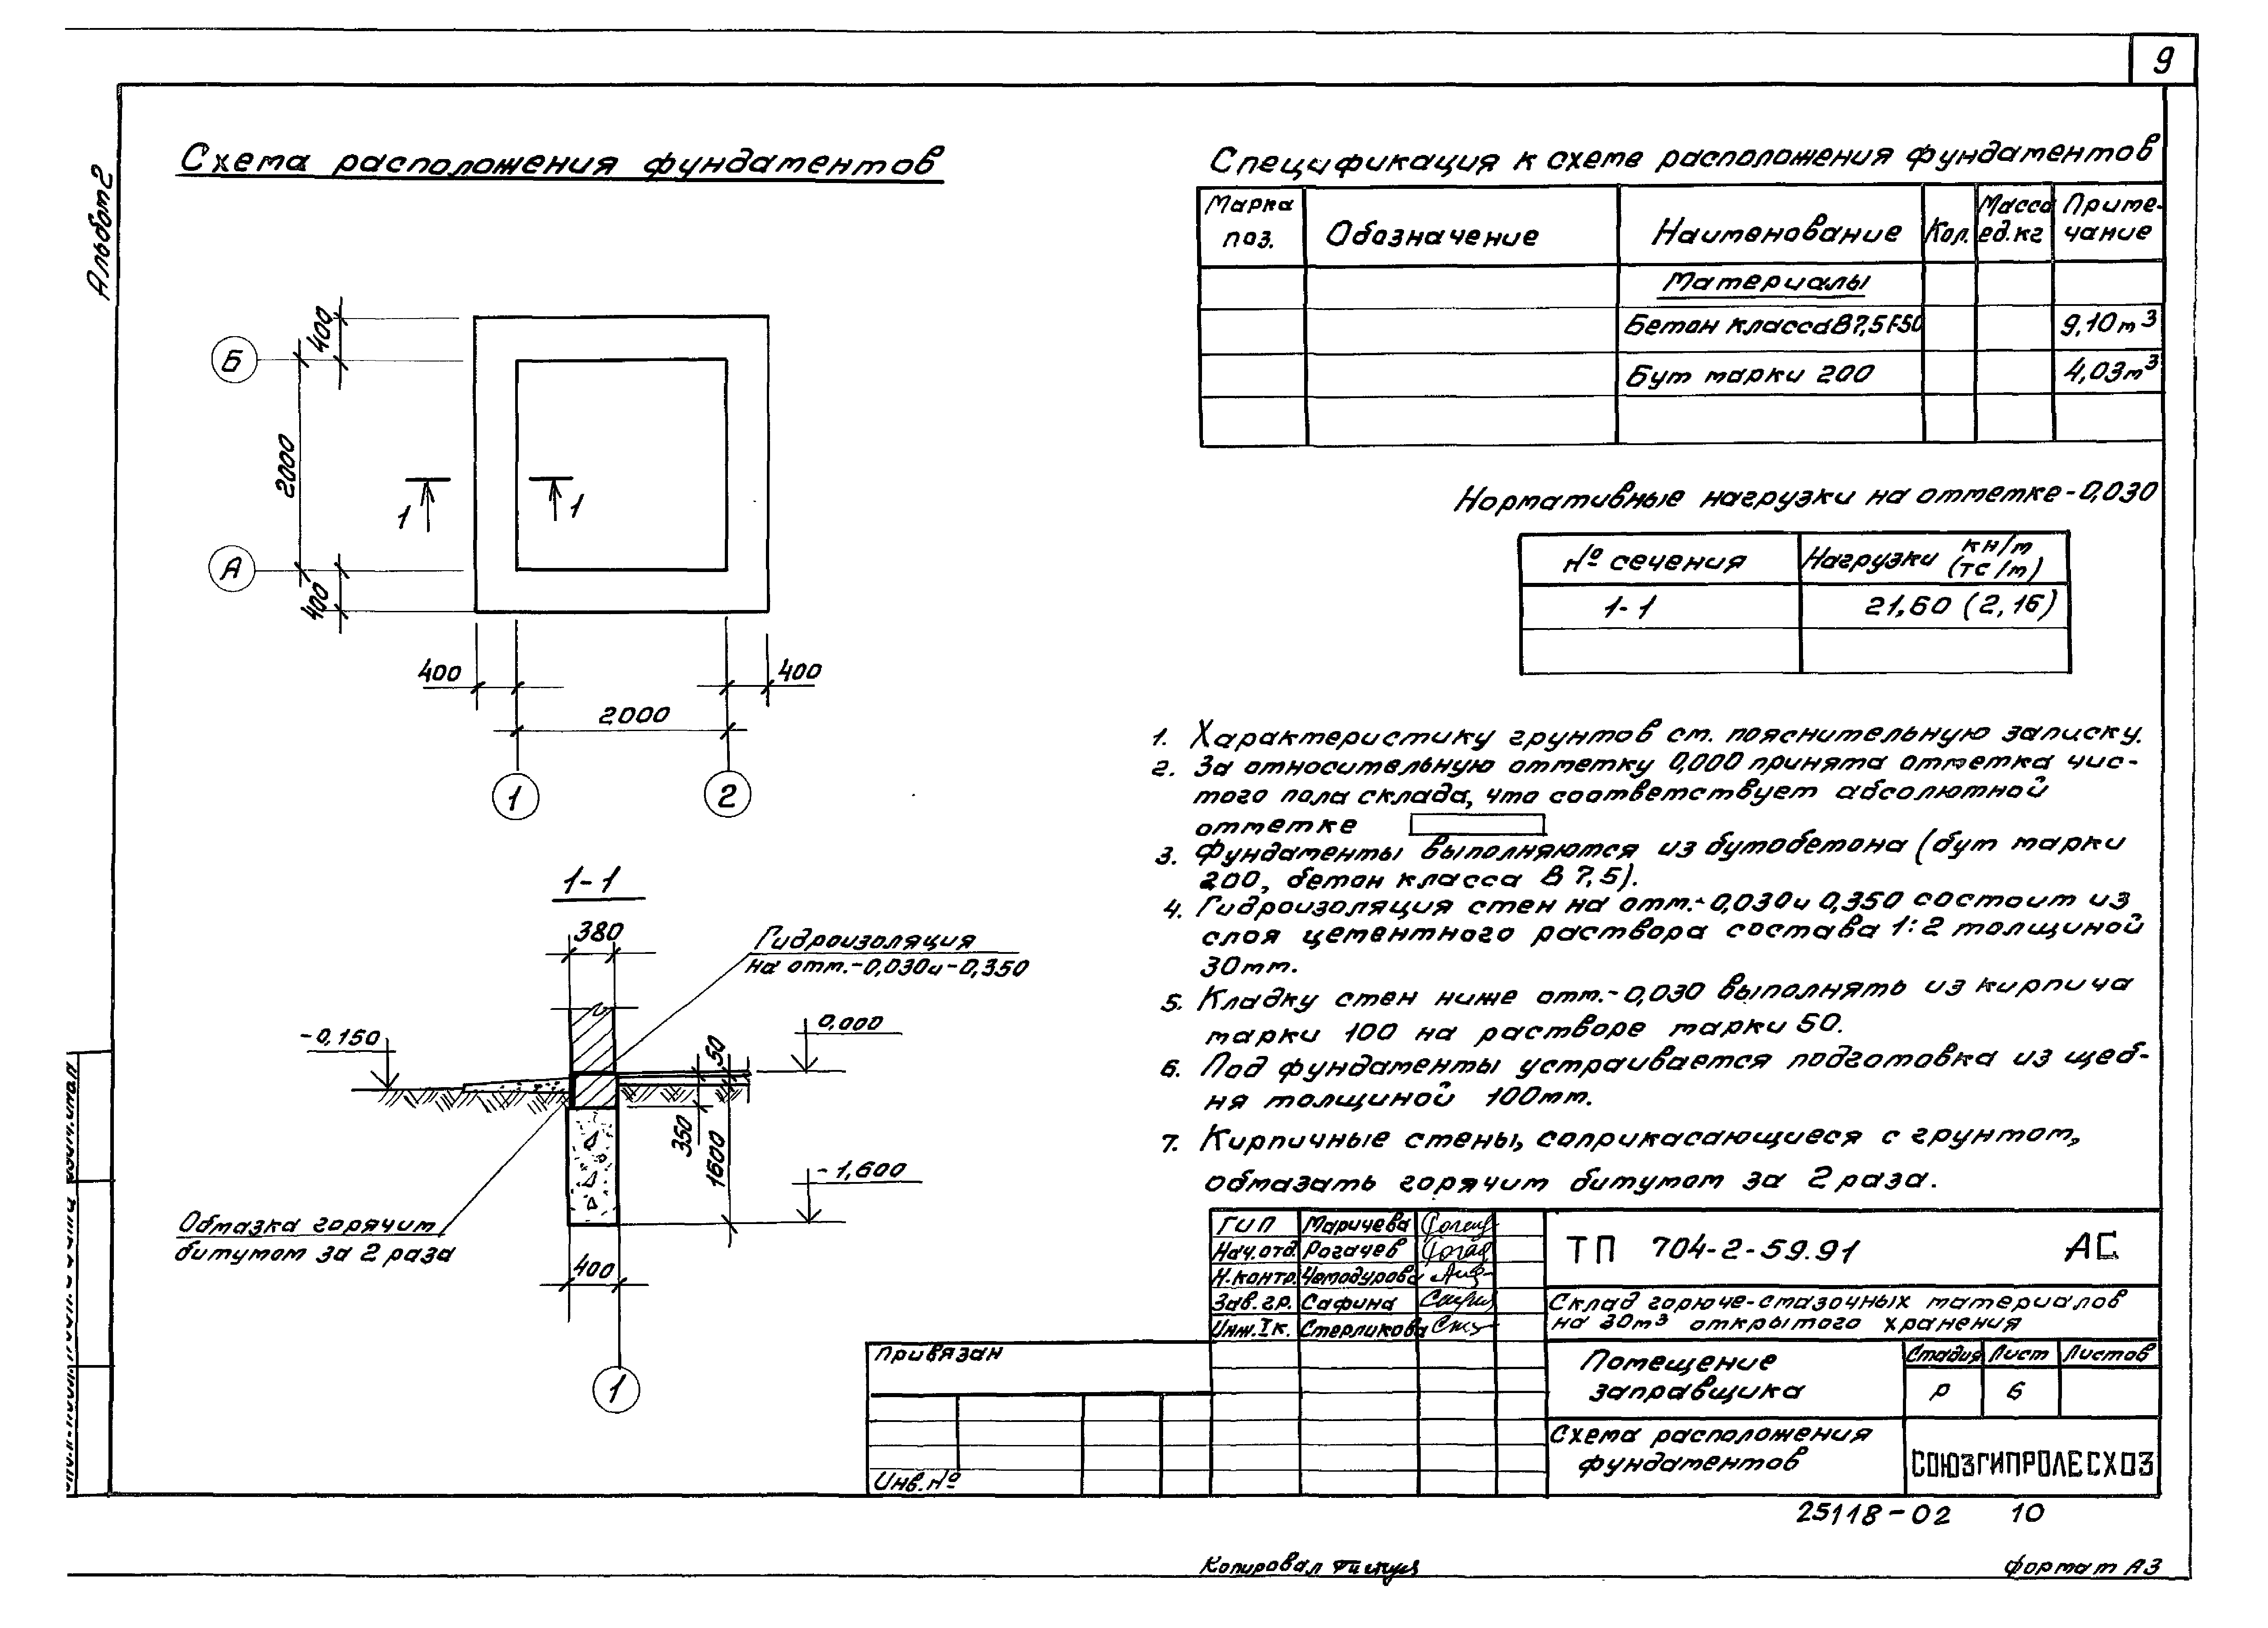 9
Альбом 2
Схема расположения фундаментов
Б
А
400
2000
400
1
1
400
400
2000
1
2
1-1
380
Гидроизоляция
на отм.-0,030и-0,350
-0,150
0,000
50
350
1600
-1,600
Обмазка горячим
битумом за 2 раза
400
1
Спецификация к схеме расположения фундаментов
Марка поз.
Обозначение
Наименование
Кол.
Масса ед.кг
Приме-
чание
Материалы
Бетон класса В7,5 F50
9,10м³
Бут марки 200
4,03м³
Нормативные нагрузки на отметке-0,030
№ сечения
Нагрузки кн/м (тс/м)
1-1
21,60 (2,16)
1. Характеристику грунтов см. пояснительную записку.
2. За относительную отметку 0,000 принята отметка чис-
того пола склада, что соответствует абсолютной
отметке
3. Фундаменты выполняются из бутобетона (бут марки
200, бетон класса В 7,5).
4. Гидроизоляция стен на отм.-0,030и 0,350 состоит из
слоя цементного раствора состава 1:2 толщиной
30мм.
5. Кладку стен ниже отм.-0,030 выполнять из кирпича
марки 100 на растворе марки 50.
6. Под фундаменты устраивается подготовка из щеб-
ня толщиной 100мм.
7. Кирпичные стены, соприкасающиеся с грунтом,
обмазать горячим битумом за 2 раза.
ГИП Маричева
Нач.отд. Рогачев
Н.контр. Чемодурова
Зав.гр. Сафина
Инж.Iк. Стерликова
ТП 704-2-59.91 АС
Склад горюче-смазочных материалов
на 30м³ открытого хранения
Помещение
заправщика
Стадия Лист Листов
Р 6
Схема расположения
фундаментов
СОЮЗГИПРОЛЕСХОЗ
Привязан
Инв.№
25118-02 10
Копировал
Формат А3